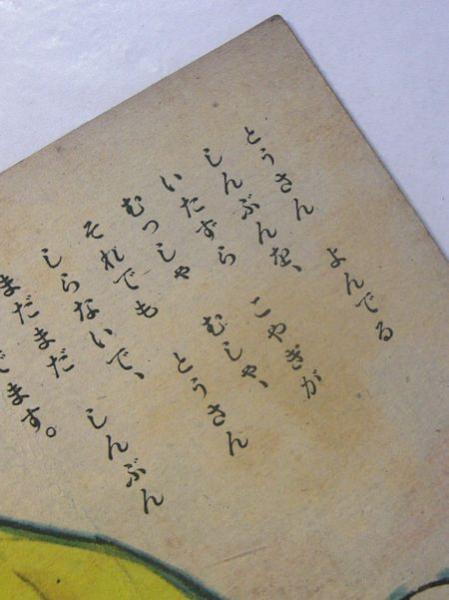 とうさん　よんでる
しんぶんを、
いたずら　こやぎが
むっしゃ　むしゃ、
それでも　とうさん
しらないで、
まだまだ　しんぶん
でます。